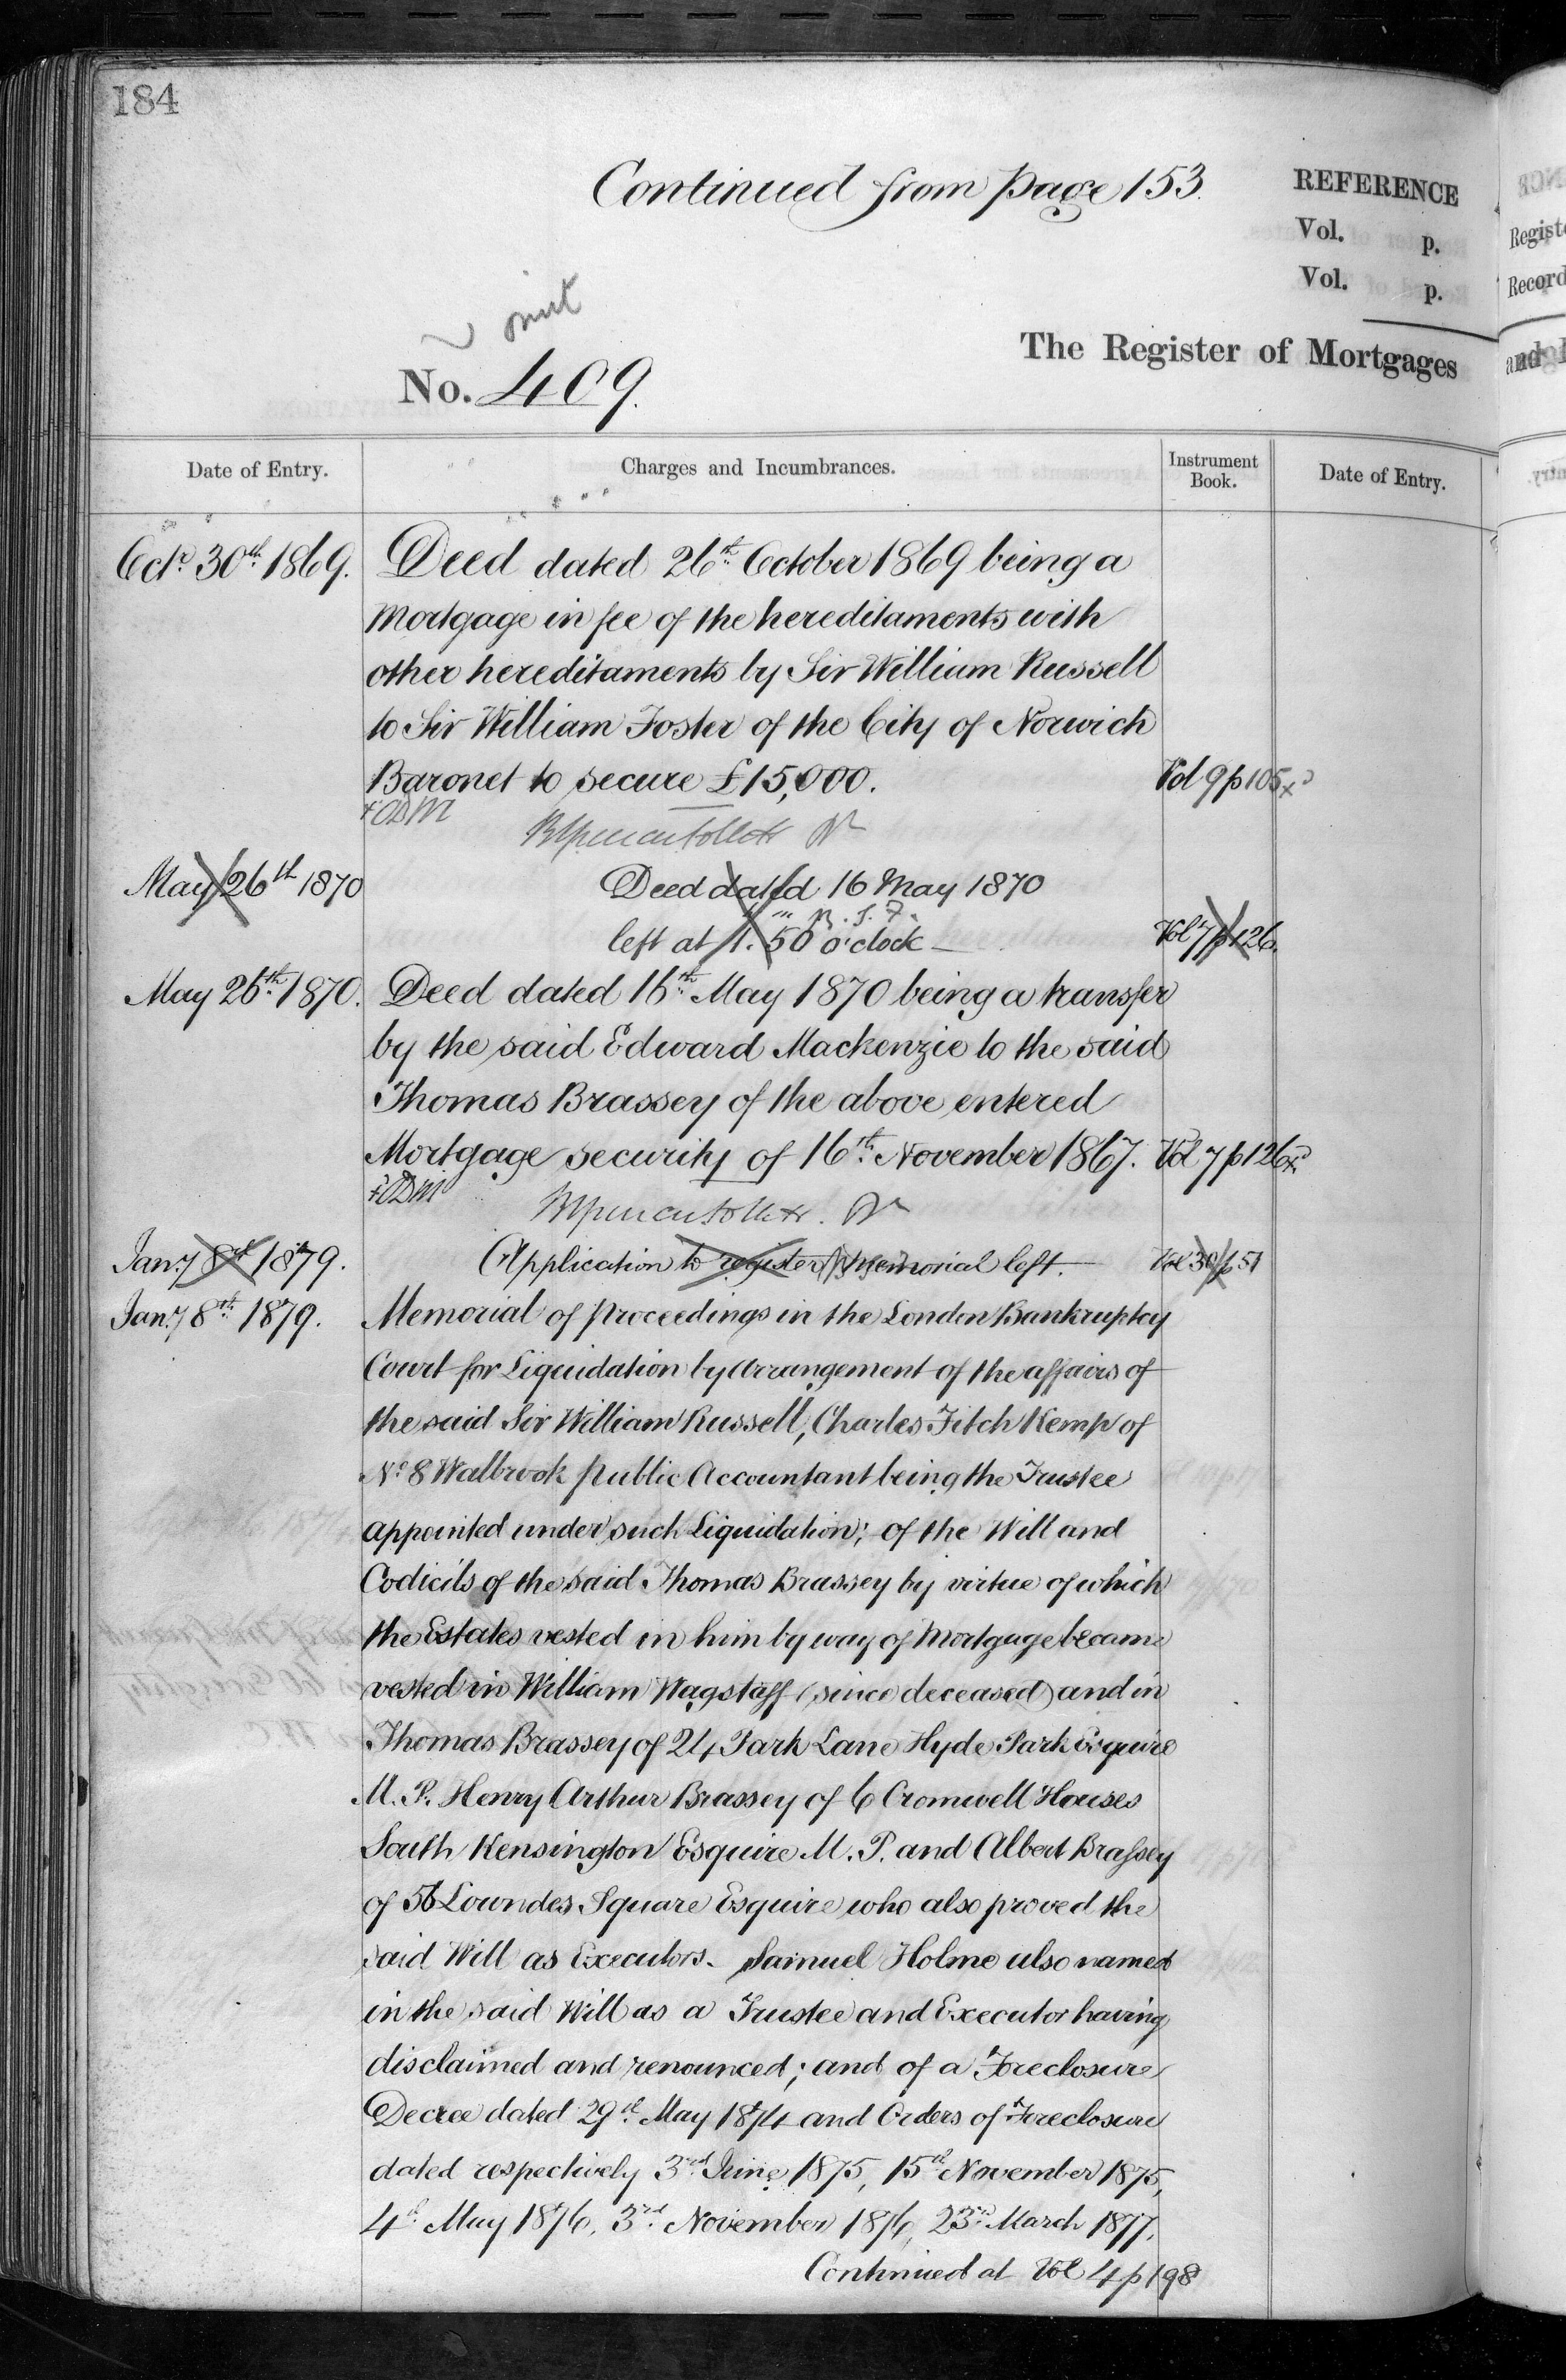 184
Continued from page 153.
REFERENCE
Vol. p.
Vol. p.
omit
No. 409.
The Register of Mortgages
Date of Entry.
Charges and Incumbrances.
Instrument Book.
Date of Entry.
Octr. 30th. 1869. Deed dated 26th. October 1869 being a
Mortgage in fee of the hereditaments with
other hereditaments by Sir William Russell
to Sir William Foster of the City of Norwich
Baronet to secure £15,000. Vol 9 p 105
May 26th 1870 Deed dated 16 May 1870
left at 1.50 o'clock Vol 7 p 126.
May 26th. 1870. Deed dated 16th. May 1870 being a transfer
by the said Edward Mackenzie to the said
Thomas Brassey of the above entered
Mortgage security of 16th. November 1867. Vol 7 p 126
Jany 8th 1879. Application to register Memorial left. Vol 30 p 51
Jany 8th. 1879. Memorial of proceedings in the London Bankruptcy
Court for Liquidation by Arrangement of the affairs of
the said Sir William Russell, Charles Fitch Kemp of
No. 8 Walbrook Public Accountant being the Trustee
appointed under such Liquidation; of the Will and
Codicils of the said Thomas Brassey by virtue of which
the Estates vested in him by way of Mortgage became
vested in William Wagstaff (since deceased) and in
Thomas Brassey of 24 Park Lane Hyde Park Esquire
M.P. Henry Arthur Brassey of 6 Cromwell Houses
South Kensington Esquire M.P. and Albert Brassey
of 56 Lowndes Square Esquire who also proved the
said Will as Executors. Samuel Holme also named
in the said Will as a Trustee and Executor having
disclaimed and renounced; and of a Foreclosure
Decree dated 29th. May 1874 and Orders of Foreclosure
dated respectively 3rd. June 1875, 15th. November 1875,
4th. May 1876, 3rd. November 1876, 23rd. March 1877,
Continued at Vol 4 p 198